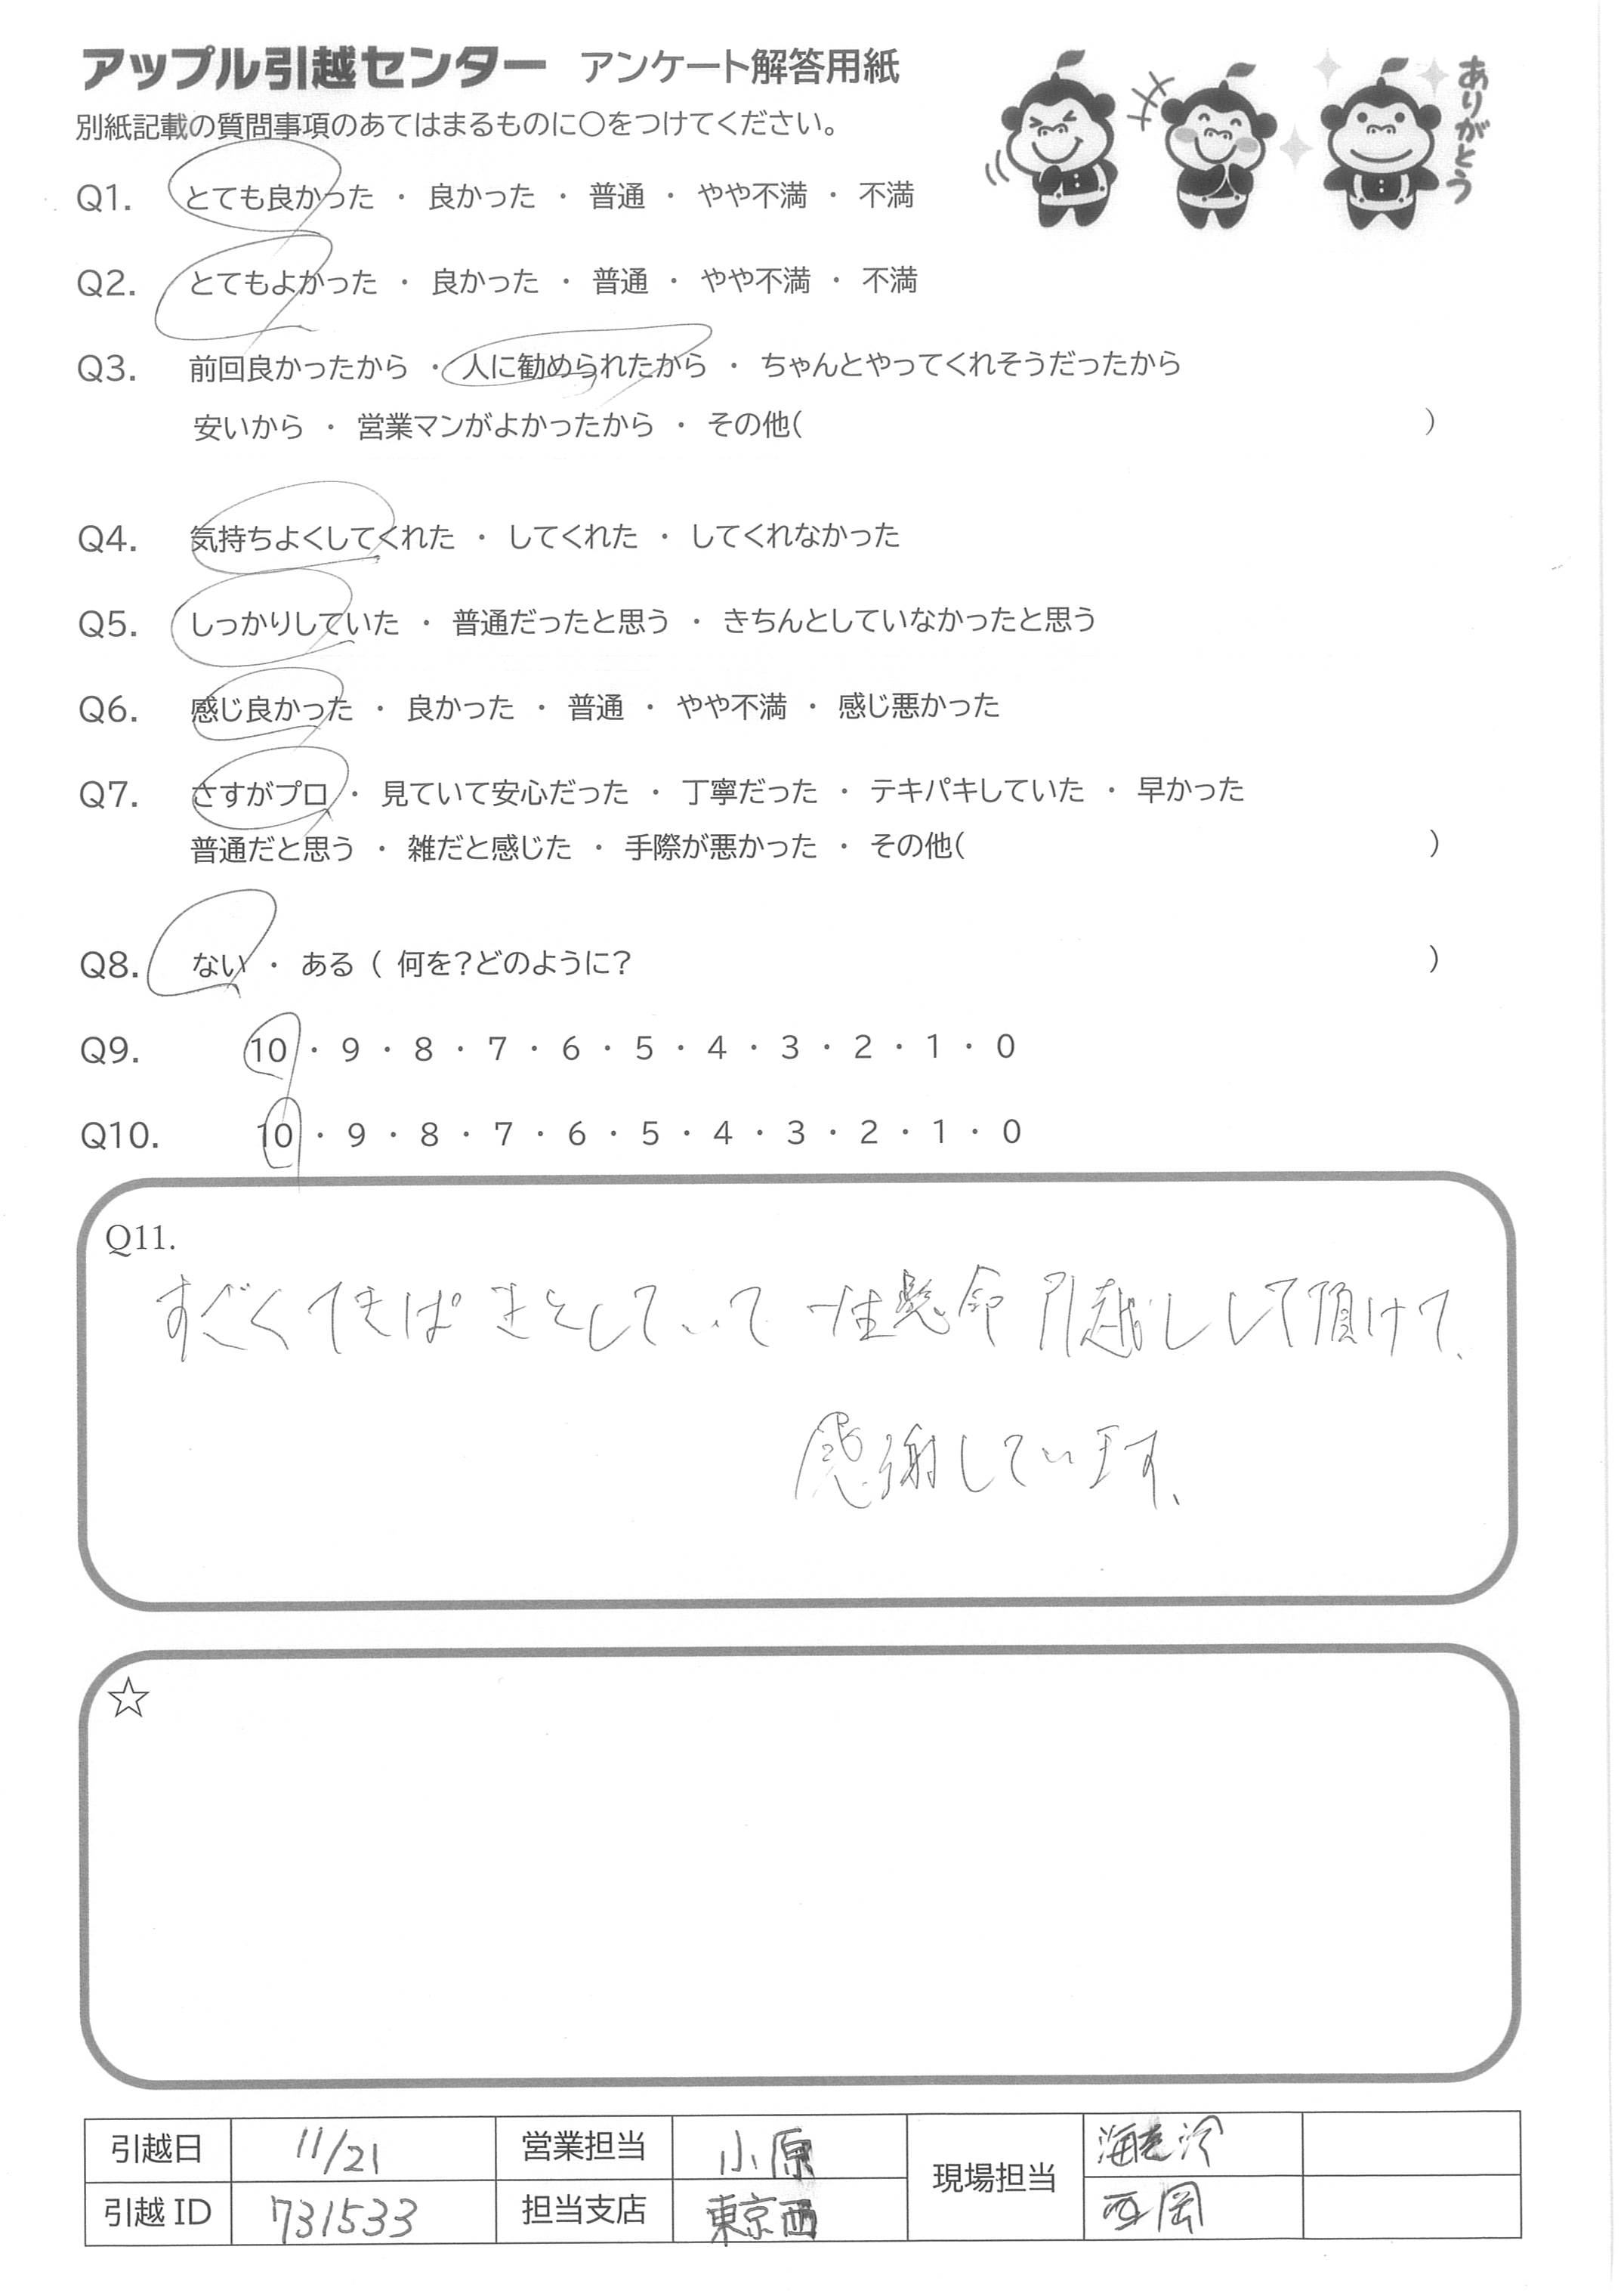 アップル引越センター アンケート解答用紙
ありがとう
別紙記載の質問事項のあてはまるものに〇をつけてください。
Q1. とても良かった ・ 良かった ・ 普通 ・ やや不満 ・ 不満
Q2. とてもよかった ・ 良かった ・ 普通 ・ やや不満 ・ 不満
Q3. 前回良かったから ・ 人に勧められたから ・ ちゃんとやってくれそうだったから
安いから ・ 営業マンがよかったから ・ その他( )
Q4. 気持ちよくしてくれた ・ してくれた ・ してくれなかった
Q5. しっかりしていた ・ 普通だったと思う ・ きちんとしていなかったと思う
Q6. 感じ良かった ・ 良かった ・ 普通 ・ やや不満 ・ 感じ悪かった
Q7. さすがプロ ・ 見ていて安心だった ・ 丁寧だった ・ テキパキしていた ・ 早かった
普通だと思う ・ 雑だと感じた ・ 手際が悪かった ・ その他( )
Q8. ない ・ ある ( 何を?どのように? )
Q9. 10 ・ 9 ・ 8 ・ 7 ・ 6 ・ 5 ・ 4 ・ 3 ・ 2 ・ 1 ・ 0
Q10. 10 ・ 9 ・ 8 ・ 7 ・ 6 ・ 5 ・ 4 ・ 3 ・ 2 ・ 1 ・ 0
Q11.
すごくてきぱきとしていて 一生懸命 引越しして頂けて、
感謝しています、
☆
引越日 11/21 営業担当 小原 現場担当
引越ID 731533 担当支店 東京西 西岡